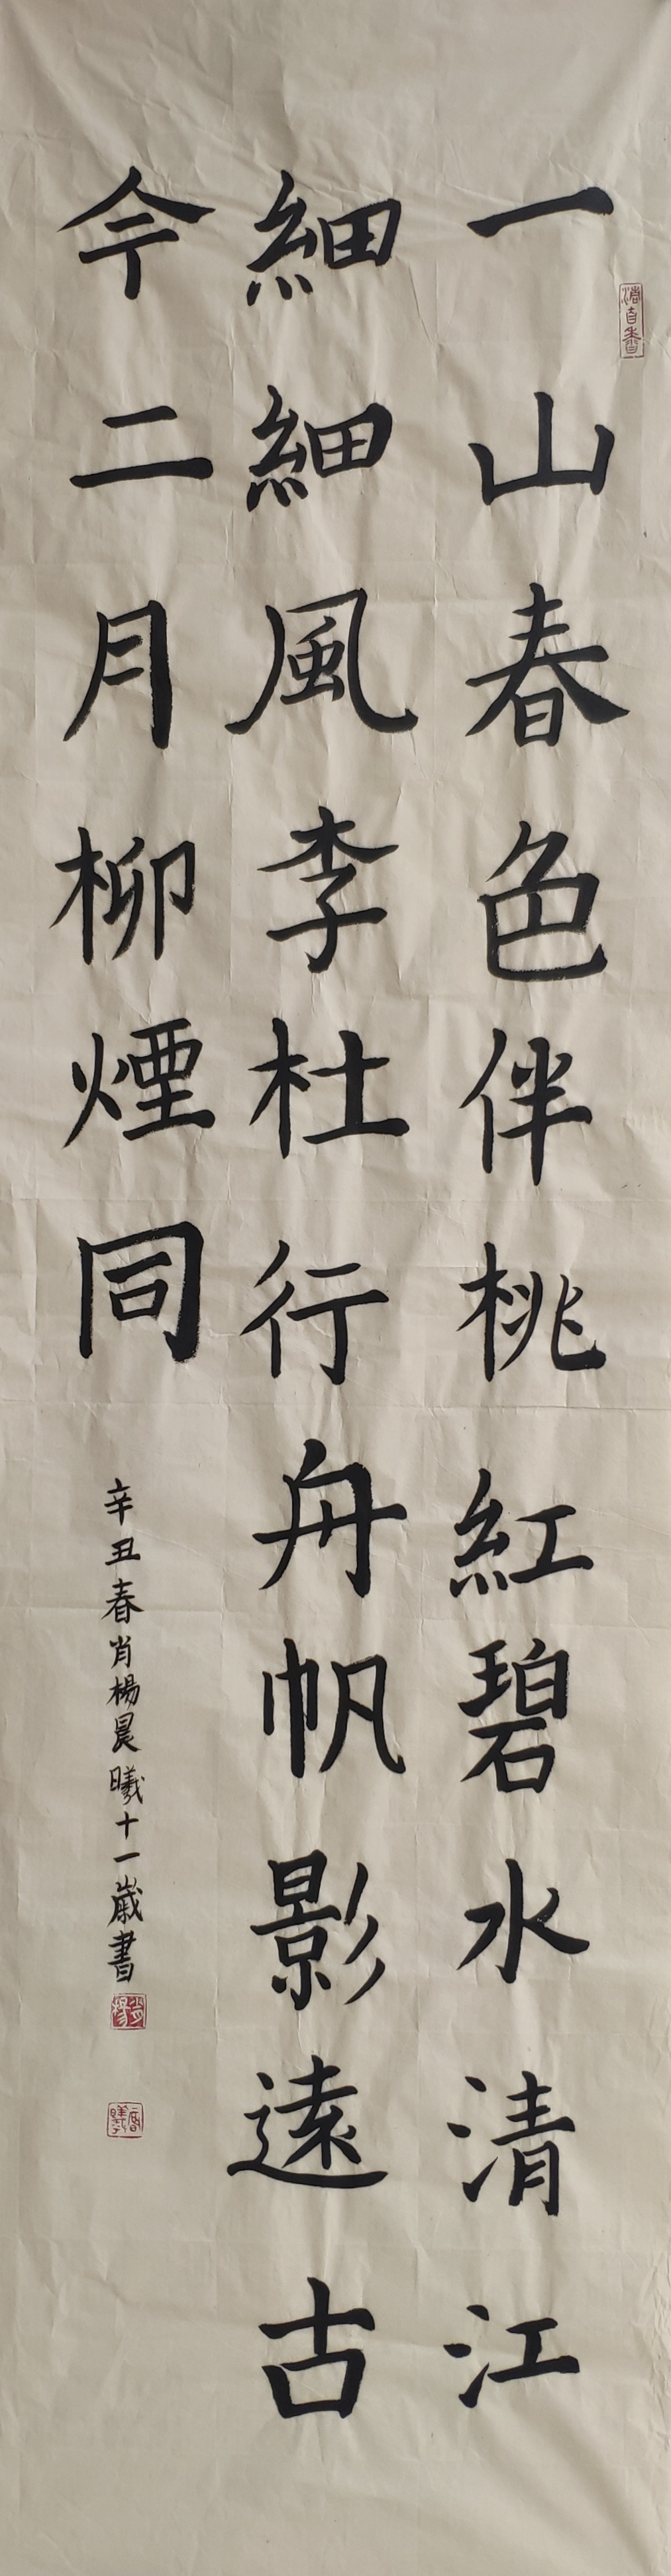 一山春色伴桃紅碧水清江
細細風李杜行舟帆影遠古
今二月柳煙同
辛丑春肖楊晨曦十一歲書
清自香
肖楊
晨曦